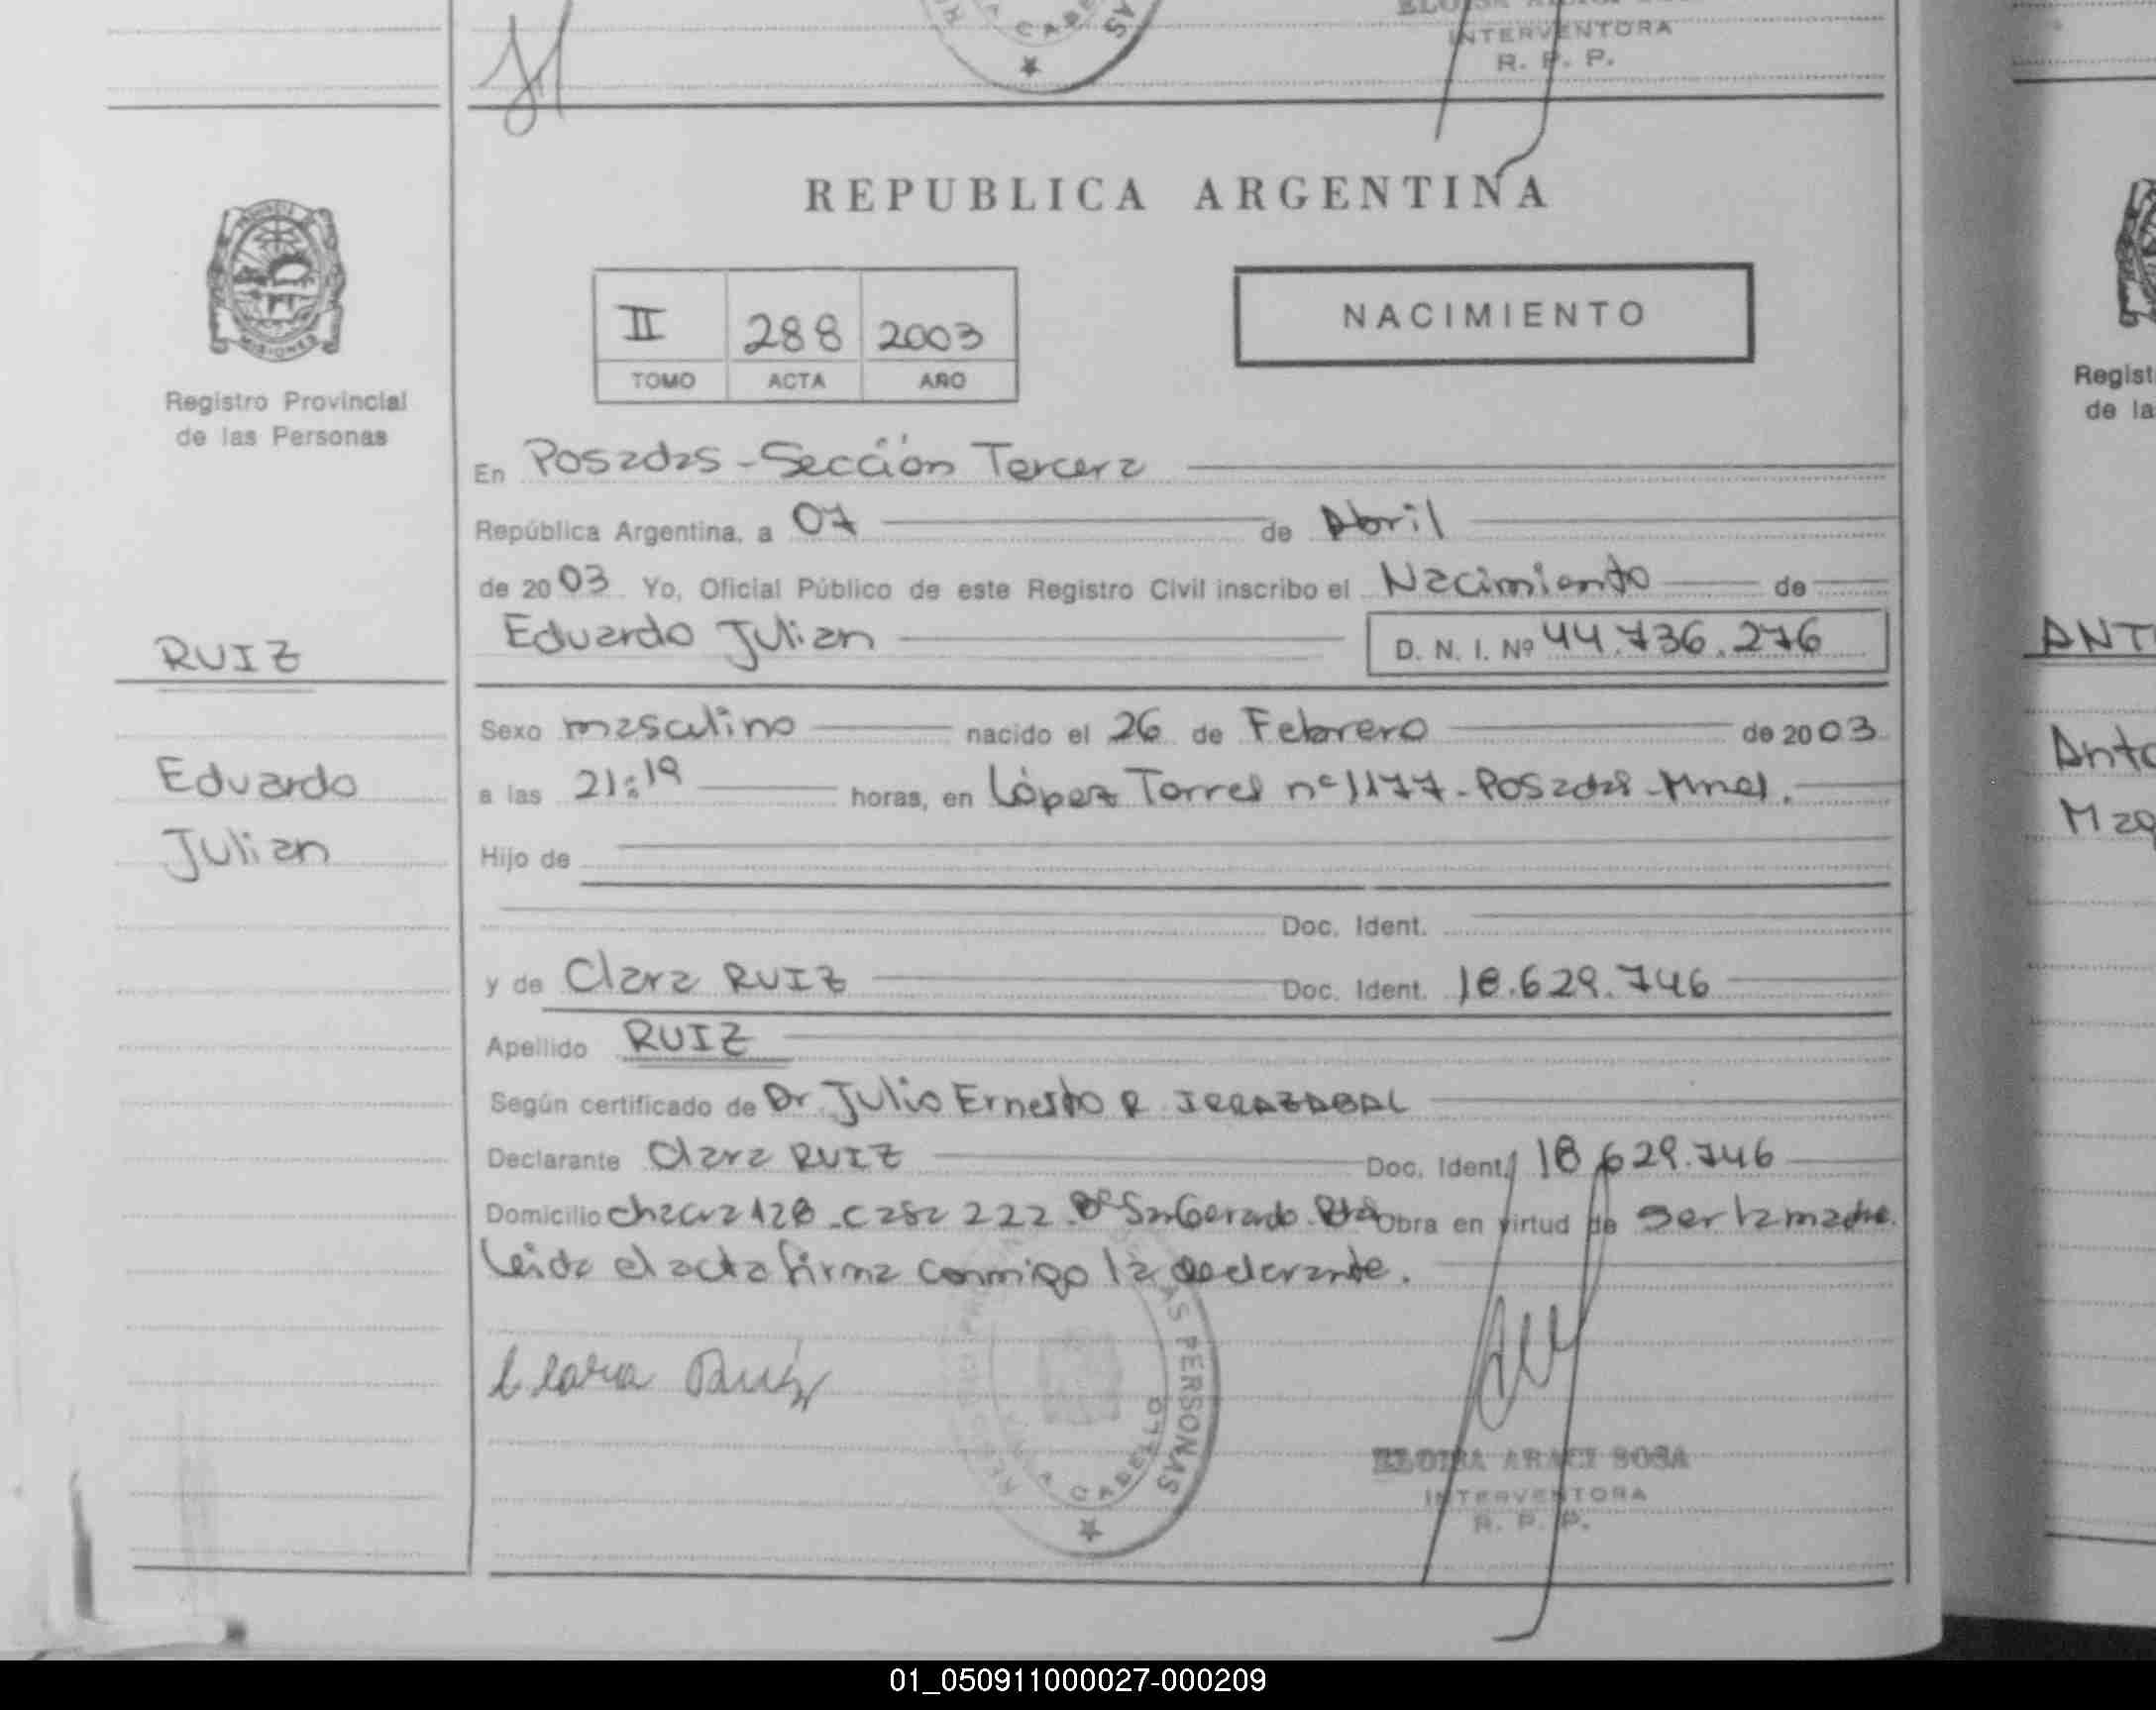 INTERVENTORA
R. P. P.
REPUBLICA ARGENTINA
MISIONES
Registro Provincial
de las Personas
II 288 2003
TOMO ACTA AÑO
NACIMIENTO
En Posadas - Sección Tercera
República Argentina, a 07 de Abril
de 2003 Yo, Oficial Público de este Registro Civil inscribo el Nacimiento de
Eduardo Julian D. N. I. Nº 44.736.276
RUIZ
Eduardo
Julian
Sexo masculino nacido el 26 de Febrero de 2003
a las 21:19 horas, en López Torres nº 1177 - Posadas - Mnes.
Hijo de
Doc. Ident.
y de Clara RUIZ Doc. Ident. 18.629.746
Apellido RUIZ
Según certificado de Dr. Julio Ernesto R IRRAZABAL
Declarante Clara RUIZ Doc. Ident. 18.629.746
Domicilio chacra 128 - casa 222 - Bº San Gerardo Obra en virtud de ser la madre.
Leida el acta firma conmigo la declarante.
Clara Ruiz
PERSONAS
CABELLO
ELOISA ARACI SOSA
INTERVENTORA
R. P. P.
Regist
de la
ANT
Anto
01_050911000027-000209